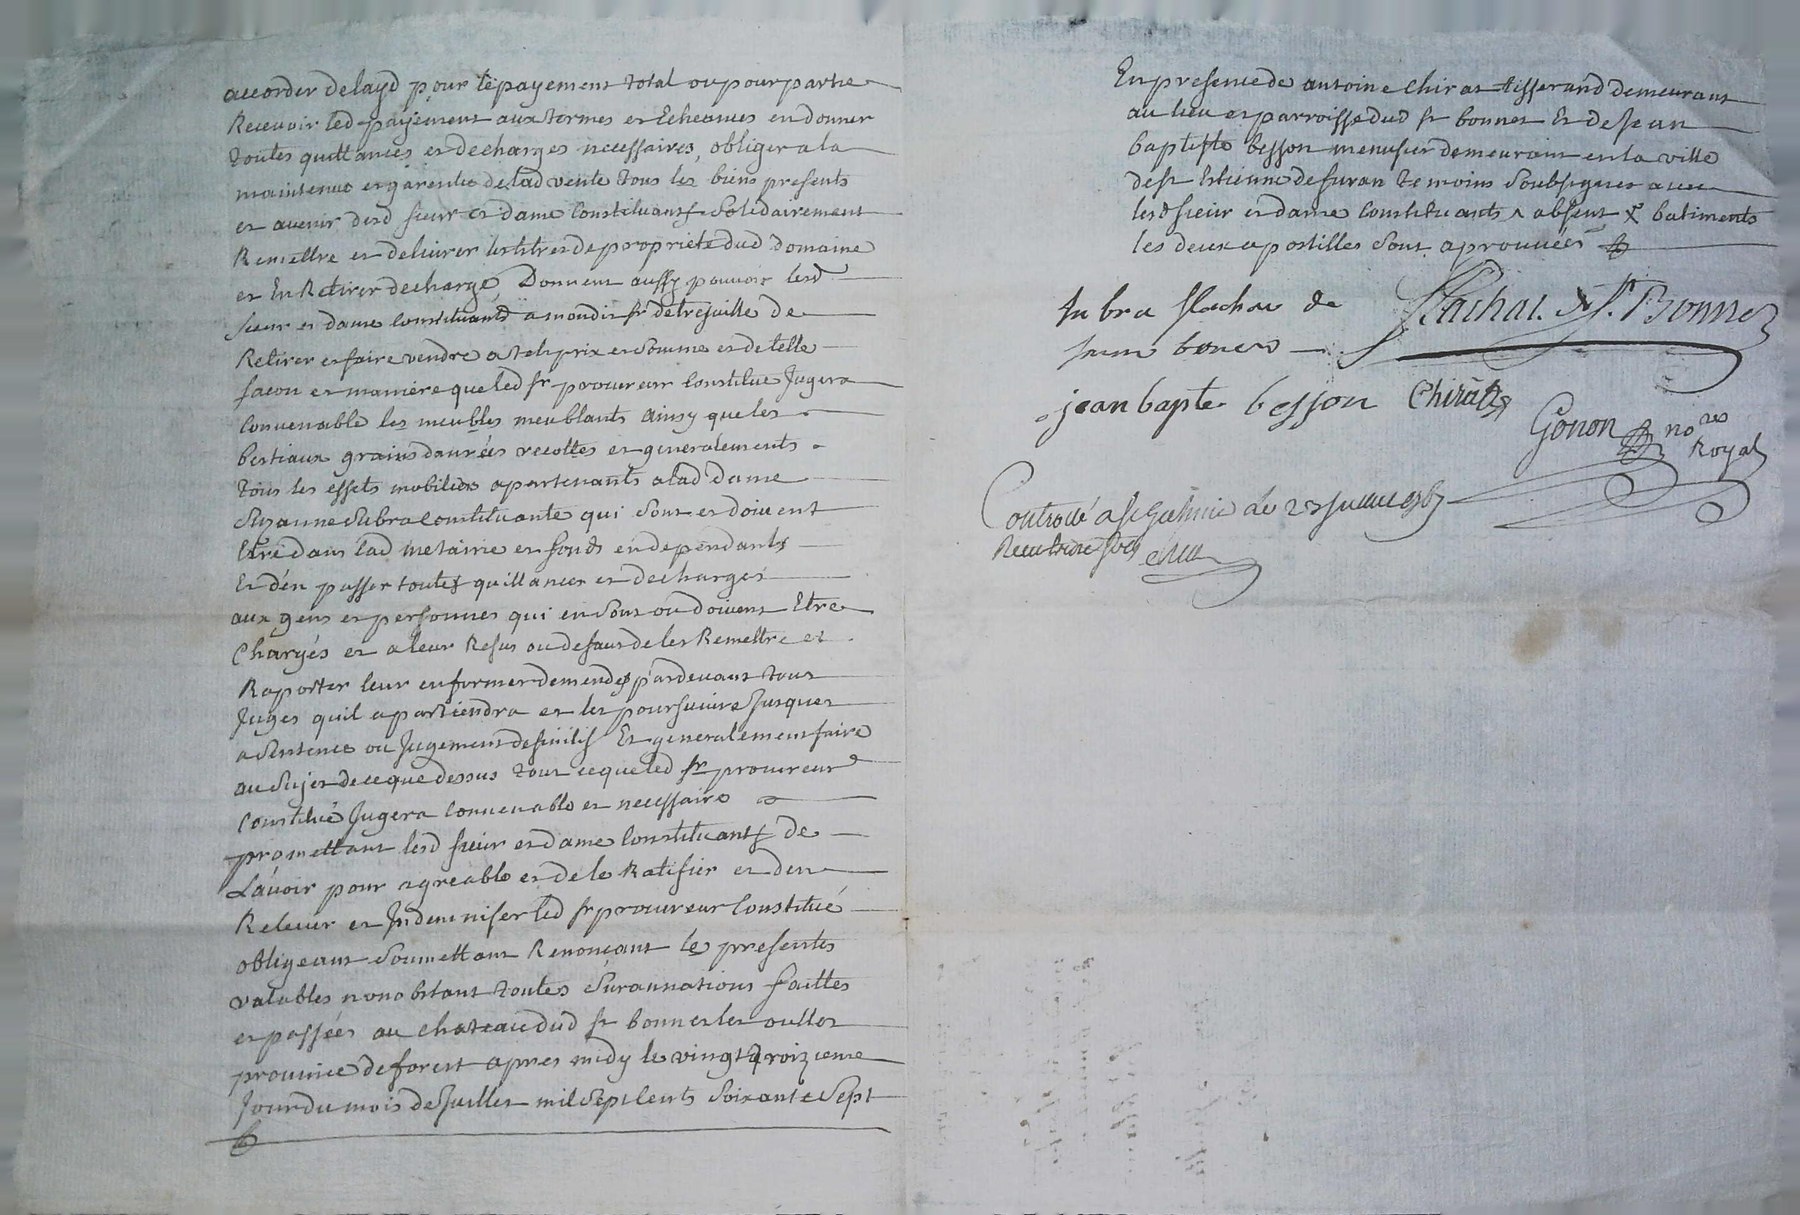 accorder delayd pour le payement total ou pour partie
Recevoir led payement aux termes et Echeances en donner
toutes quittances et decharges necessaires, obliger a la
maintenue et garentie de lad vente tous les biens presents
et avenir desd sieur et dame Constituants solidairement
Remettre et delivrer les titres de proprieté dud domaine
et En Retirer decharge, Donnent aussy pouvoir lesd
sieur et dame constituants a mondit sr
Retirer et faire vendre a tels prix et somme et de telle
facon et maniere que led sr procureur Constitué Jugera
Convenable les meubles meublants ainsy que les
bestiaux grains danrées recoltes et generalements
tous les effets mobiliers apartenants a lad dame
Suzanne Subra Constituante qui sont et doivent
Etre dans lad metairie et fonds en dependants
Et d'en passer toutes quittances et decharges
aux gens et personnes qui en sont ou doivent Etre
Chargés et a leur Refus ou defaut de les Remettre et
Raporter leur en former demende pardevant tout
Juges quil apartiendra et les poursuivre Jusques
a Sentence ou Jugement definitif Et generalement faire
au Sujet de ce que dessus tout ce que led sr procureur
Constitué Jugera Convenable et necessaire
promettant lesd sieur et dame Constituants de
Lavoir pour agreable et de le Ratifier et den
Relever et Indemniser led sr procureur Constitué
obligeant Soumettant Renonçant les presentes
valables nonobstant toutes Surannations faittes
et passées au chateau dud st bonnet les oulles
province de forest apres midy le vingt troizieme
Jour du mois de Juillet mil Sept Cents Soixante Sept
En presence de antoine Chirat tisserand demeurant
au lieu et parroisse dud st bonnet Et de Jean
baptiste besson menusier demeurant en la ville
de st Etienne de furan temoins Soubsignes avec
lesd sieur et dame Constituants absent batiments
les deux apostilles Sont aprouvées
Subra flachat de
Flachat. De St. Bonnet
jean bapte besson Chirat
Gonon nores
Royal
Controllé a St Galmier le 23 Juillet 1767
Receu